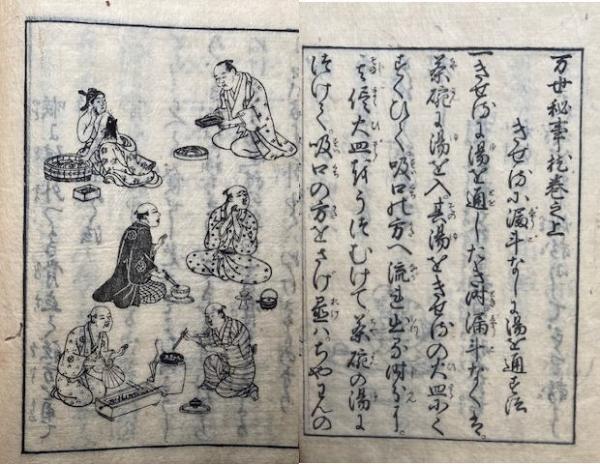 万世秘事枕巻之上
きせるに漏斗なしに湯を通す法
一きせるに湯を通したき時漏斗なくハ
茶碗に湯を入其湯をきせるの火皿にて
すくひて吸口の方へ流れ出る時に
其侭火皿をうつむけて茶碗の湯に
つけて吸口の方をさげ置ハちやわんの